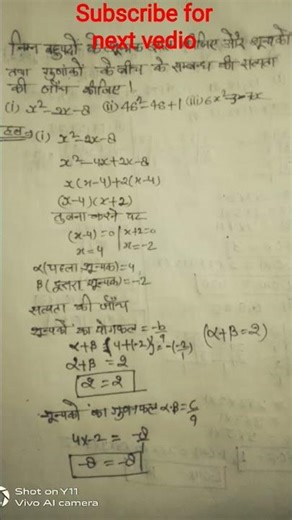 Subscribe for
next vedio
निम्न बहुपदों के कीजिए और शून्यकों
तथा गुणांकों के बीच के सम्बन्ध की सत्यता
की जाँच कीजिए।
(i) x²-2x-8 (ii) 4s²-4s+1 (iii) 6x²-3-7x
हल⇒ (i) x²-2x-8
x²-4x+2x-8
x(x-4)+2(x-4)
(x-4)(x+2)
तुलना करने पर
(x-4)=0 | x+2=0
x=4 | x=-2
α(पहला शून्यक)=4
β(दूसरा शून्यक)=-2
सत्यता की जाँच
शून्यकों का योगफल = -b/a (α+β=2)
α+β {4+(-2)}=-(-2/1)
α+β = 2
2 = 2
शून्यकों का गुणनफल α·β = c/a
4x-2 = -8/1
-8 = -8
Shot on Y11
Vivo AI camera